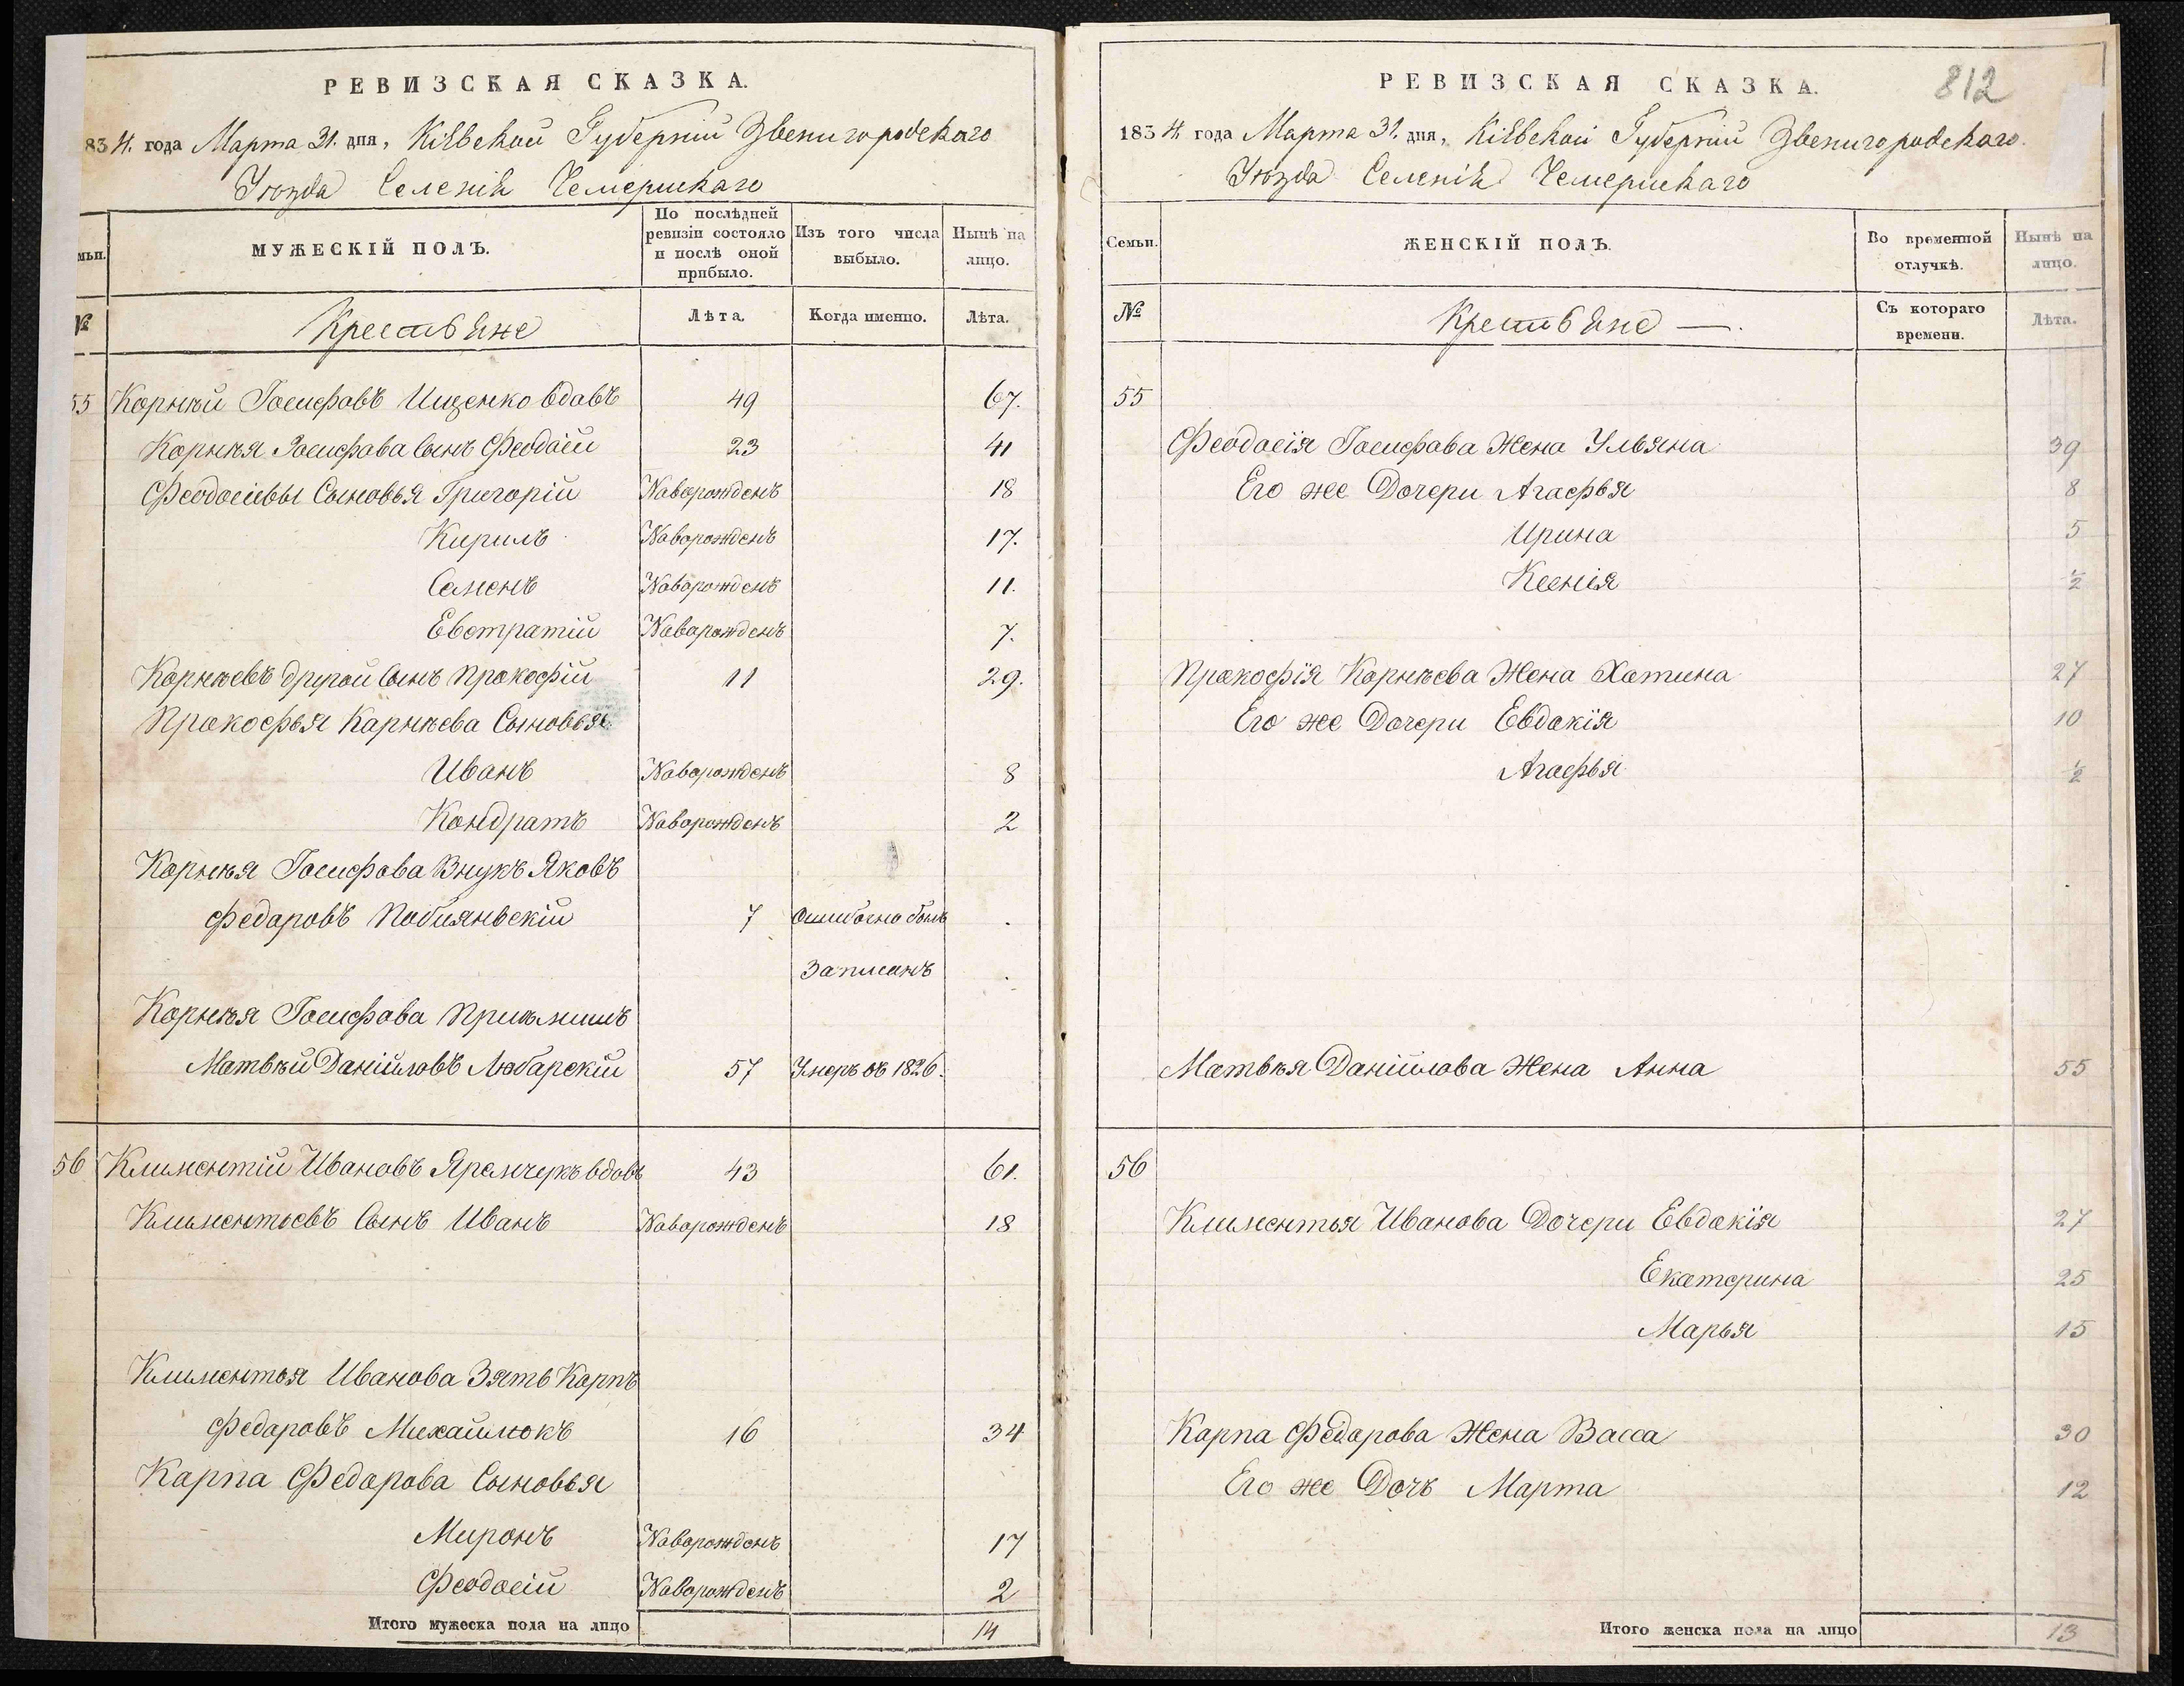 РЕВИЗСКАЯ СКАЗКА.
834. года Марта 31. дня, Кіевской Губерніи Звенигородскаго
Уѣзда Селенія Чемерискаго
мьи.
МУЖЕСКІЙ ПОЛЪ.
По послѣдней ревизіи состояло и послѣ оной прибыло.
Изъ того числа выбыло.
Нынѣ на лицо.
№
Крестьяне
Лѣта.
Когда именно.
Лѣта.
55 Корнѣй Іосифовъ Ищенко вдовъ 49 67.
Корнѣя Іосифова Сынъ Феодосій 23 41
Феодосіевы Сыновья Григорій Новорожденъ 18
Кирилъ Новорожденъ 17.
Семенъ Новорожденъ 11.
Евстратій Новорожденъ 7.
Корнѣевъ другой Сынъ Прокофій 11 29.
Прокофья Карнѣева Сыновья
Иванъ Новорожденъ 8
Кондратъ Новорожденъ 2
Корнѣя Іосифова Внукъ Яковъ
Федоровъ 7 Ошибочно былъ
Записанъ
Корнѣя Іосифова
Матвѣй Даніиловъ Любарскій 57 Умеръ въ 1826.
56 Климентій Ивановъ вдовъ 43 61.
Климентьевъ Сынъ Иванъ Новорожденъ 18
Климентья Иванова Зять Карпъ
Федоровъ Михайлюкъ 16 34
Карпа Федорова Сыновья
Миронъ Новорожденъ 17
Феодосій Новорожденъ 2
Итого мужеска пола на лицо 14
РЕВИЗСКАЯ СКАЗКА.
812
1834. года Марта 31. дня, Кіевской Губерніи Звенигородскаго.
Уѣзда Селенія Чемерискаго
Семьи.
ЖЕНСКІЙ ПОЛЪ.
Во временной отлучкѣ.
Нынѣ на лицо.
№
Крестьяне —.
Съ котораго времени.
Лѣта.
55
Феодосія Іосифова Жена Ульяна 39
Его же Дочери Агафья 8
Ирина 5
Ксенія ½
Прокофія Корнѣева Жена Хотина 27
Его же Дочери Евдокія 10
Агафья ½
Матвѣя Даніилова Жена Анна 55
56
Климентья Иванова Дочери Евдокія 27
Екатерина 25
Марья 15
Карпа Федорова Жена Васса 30
Его же Дочь Марта 12
Итого женска пола на лицо 13